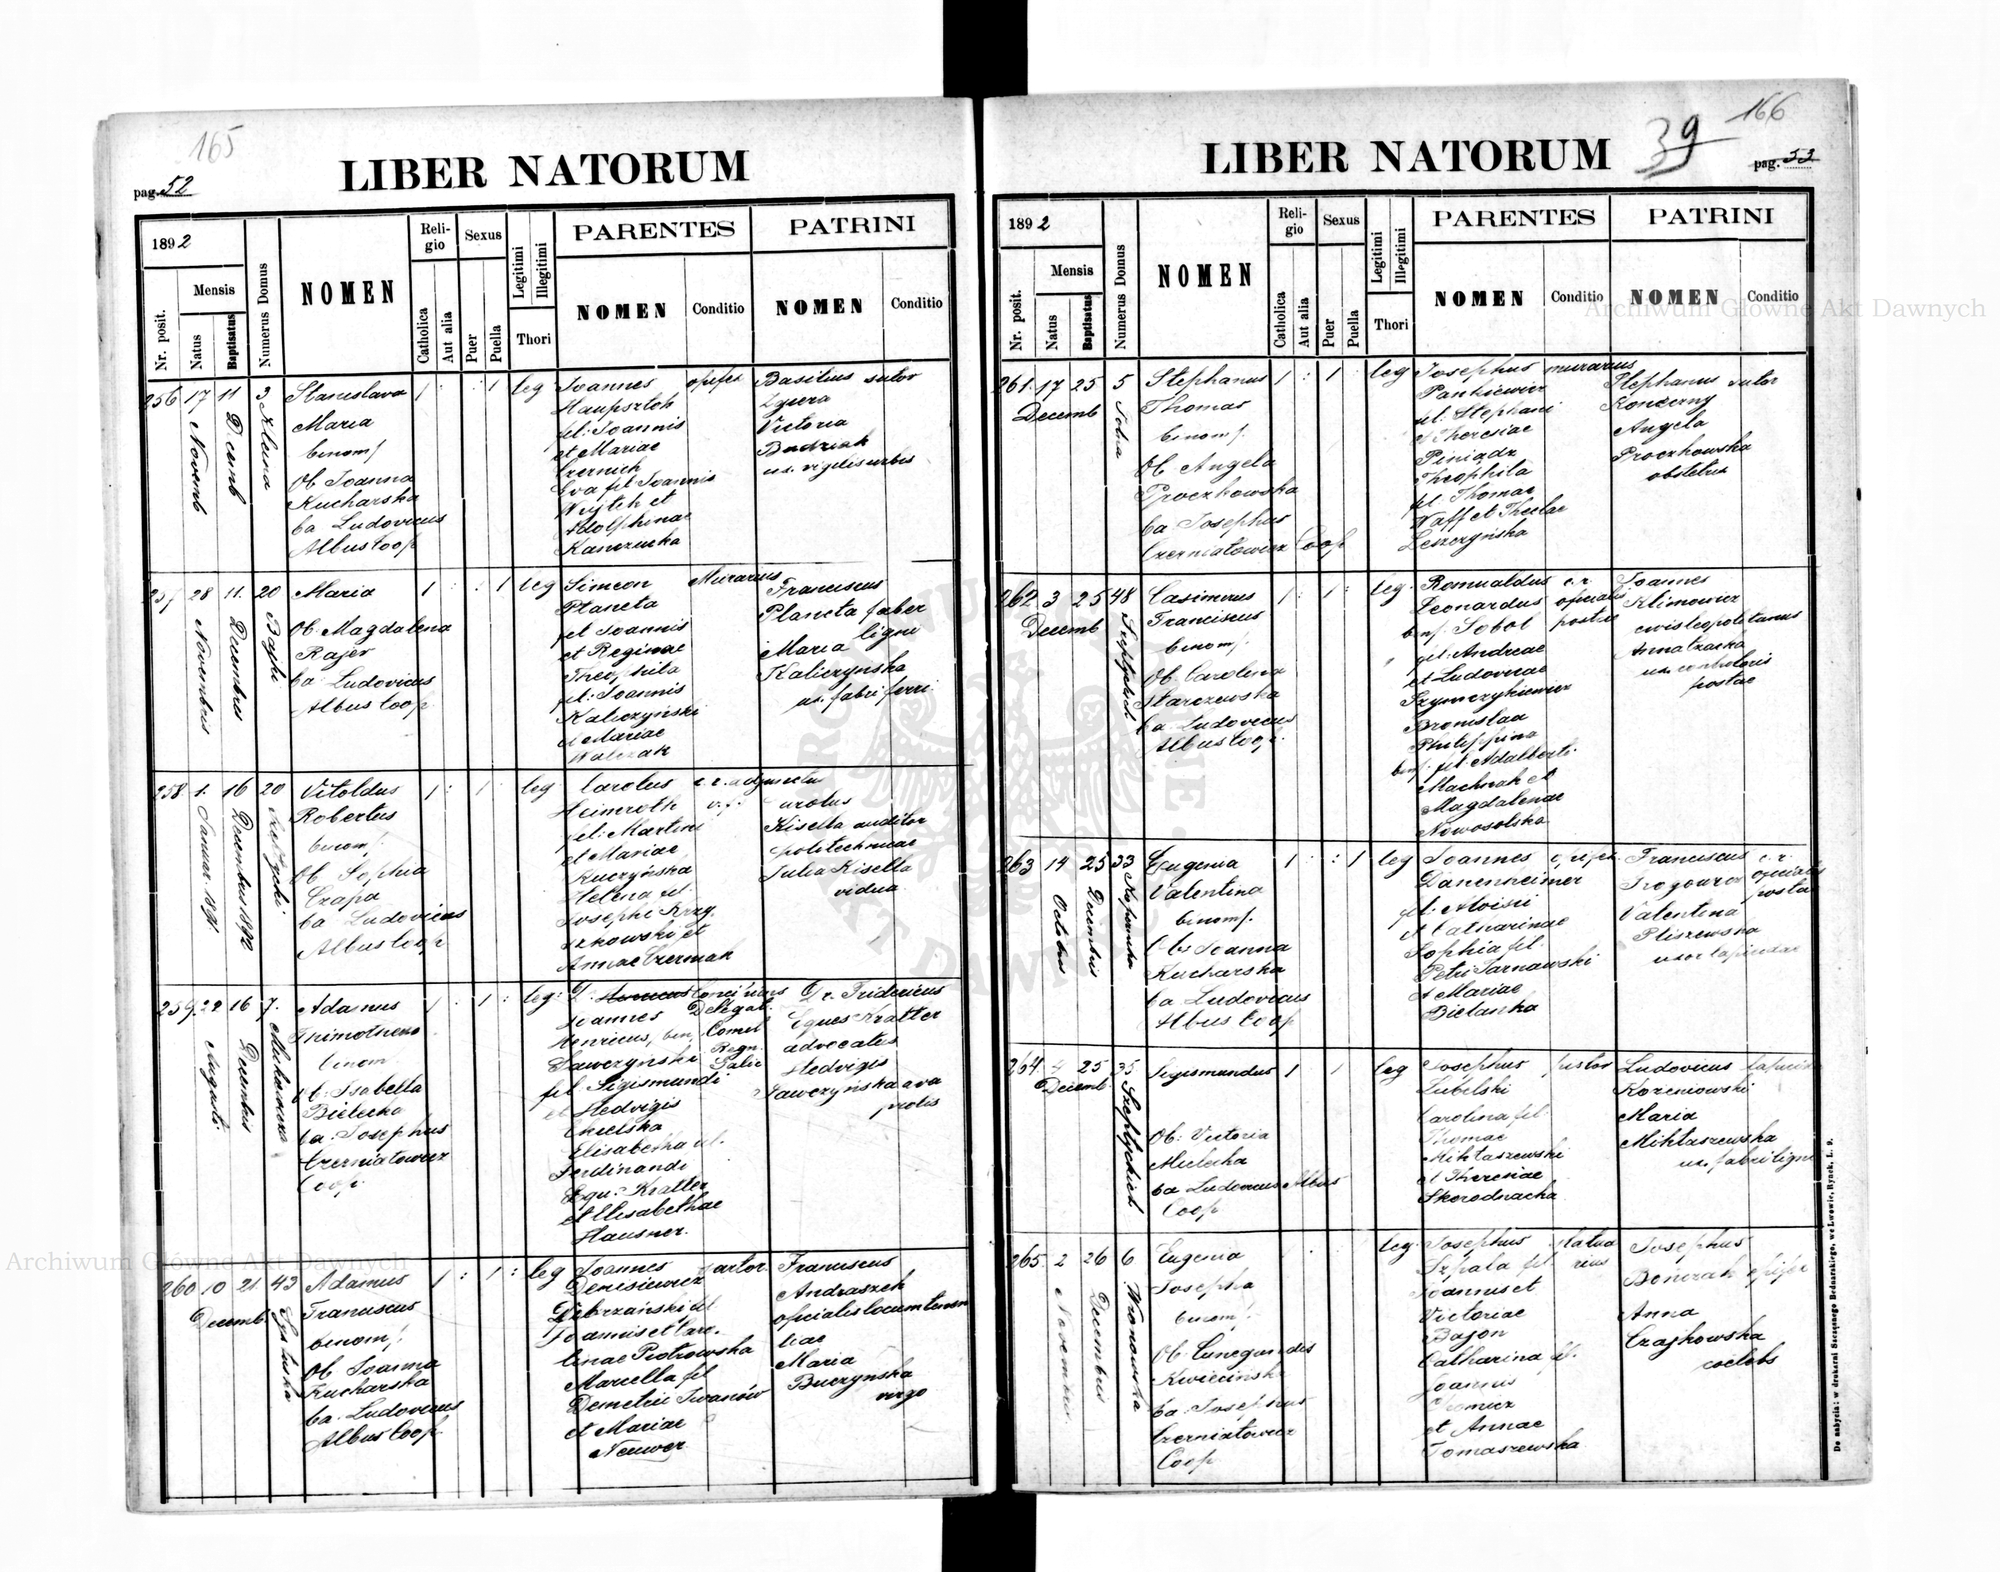 165
LIBER NATORUM
pag. 52
1892
Mensis
Nr. posit.
Natus
Baptisatus
Numerus Domus
NOMEN
Religio
Catholica
Aut alia
Sexus
Puer
Puella
Legitimi
Illegitimi
Thori
PARENTES
NOMEN
Conditio
PATRINI
NOMEN
Conditio
256 17 11 3
Novemb
Decemb
Stanislava
Maria
binom
Ob Joanna
Kucharska
ba Ludovicus
Albus Coop
1 : : 1 leg
Joannes opifex
fil: Joannis
et Mariae
Eva fil Joannis
Wojtch et
Adolphinae
Kanczucka
Basilius sutor
Victoria
Budziak
ux. vigilis urbis
257 28 11 20
Novembris
Decembris
Bajki
Maria
Ob. Magdalena
Rajer
ba Ludovicus
Albus Coop
1 : : 1 leg
Simeon Murarius
Planeta
fil Joannis
et Reginae
Theophila
fil: Joannis
Kaliczyński
et Mariae
Walczak
Franciscus
Planeta faber
ligni
Maria
Kaliczynska
ux. fabri ferri
258 1. 16 20
Januar. 1891
Decembris 1892
Vitoldus
Robertus
binom
Ob Sophia
Czapa
ba Ludovicus
Albus Coop
1 : 1 leg
Carolus c. r. adjunctus
Heimroth
fil: Martini
et Mariae
Kuczyńska
Helena fil.
Josephi Krzy-
szkowski et
Annae Czermak
Carolus
Kisella auditor
politechnicae
Julia Kisella
vidua
259 22 16 7.
Augusti
Decembris
Adamus
Thimotheus
binom
Ob: Isabella
Bielecka
ba: Josephus
Czerniatowicz
Coop
1 : 1 : leg:
Joannes
Henricus, bin,
Sawczyński
fil Sigismundi
et Hedvigis
Elisabetha fil.
Ferdinandi
Equ: Kratter
et Elisabethae
Hausner.
Delegat.
Comit
Regn.
Galic
Dr. Fridericus
Eques Kratter
advocatus
Hedvigis
Sawczyńska ava
prolis
260 10 21 43
Decemb
Adamus
Franciscus
binom
Ob Joanna
Kucharska
ba. Ludovicus
Albus Coop
1 : 1 : leg
Joannes sartor
Denisiewicz
Dobrzański fil
Joannis et Caro-
linae Piotrowska
Marcella fil
Demetrii Iwanów
et Mariae
Neuwer
Franciscus
Andraszek
officialis locumtenen
tiae
Maria
Buczynska
virgo
166
39
LIBER NATORUM
pag. 53
1892
Mensis
Nr. posit.
Natus
Baptisatus
Numerus Domus
NOMEN
Religio
Catholica
Aut alia
Sexus
Puer
Puella
Legitimi
Illegitimi
Thori
PARENTES
NOMEN
Conditio
PATRINI
NOMEN
Conditio
261. 17 25 5
Decemb
Stephanus
Thomas
binom
Ob Angela
Proczkowska
ba Josephus
Czerniatowicz Coop
1 : 1 leg
Josephus murarius
Pankiewicz
fil: Stephani
et Theresiae
Piniądz
Theophila
fil Thomae
Naff et Theclae
Leszczyńska
Stephanus sutor
Konzerny
Angela
Proczkowska
obstetrix
262 3 25 48
Decemb
Casimirus
Franciscus
binom
Ob Carolina
Starczewska
ba Ludovicus
Albus Coop.
1 : 1 : leg.
Romualdus c. r.
Leonardus officialis
Sobol postae
fil: Andreae
et Ludovicae
Szymczykiewicz
Bronislaa
Philippina
fil Adalberti
Machnak et
Magdalenae
Nowosolska
Joannes
Klimowicz
civis leopolitanus
Anna
postae
263 14 25 33
Octobris
Decembris
Kopernika
Eugenia
Valentina
binom
Ob: Joanna
Kucharska
ba Ludovicus
Albus Coop
1 : : 1 leg
Joannes opifex
Danenheimer
fil: Aloisii
et Catharinae
Sophia fil.
Petri Tarnawski
et Mariae
Bielanka
Franciscus c. r.
officialis
postae
Valentina
Pliszewska
264 25 35
Decemb
Szeptyckich
Sigismundus
Ob: Victoria
Mielecka
ba Ludovicus Albus
Coop
1 1 leg
Josephus pistor
Lubelski
Carolina fil.
Thomae
Miktaszewski
et Theresiae
Skorodnacka
Ludovicus
Korzeniowski
Maria
Miktaszewska
ux. fabri ligni
265. 2 26 6
Novembris
Decembris
Wronowska
Eugenia
Josepha
binom
Ob. Cunegundis
Kwiecińska
ba: Josephus
Czerniatowicz
Coop
leg.
Josephus statua
rius
Szpala fil
Joannis et
Victoriae
Bajon
Catharina fil.
Joannis
et Annae
Tomaszewska
Josephus
Bończak opifex
Anna
Czajkowska
coelebs
Do nabycia: w drukarni Szczęsnego Bednarskiego, we Lwowie, Rynek, L. 9.
Archiwum Główne Akt Dawnych
Archiwum Główne Akt Dawnych